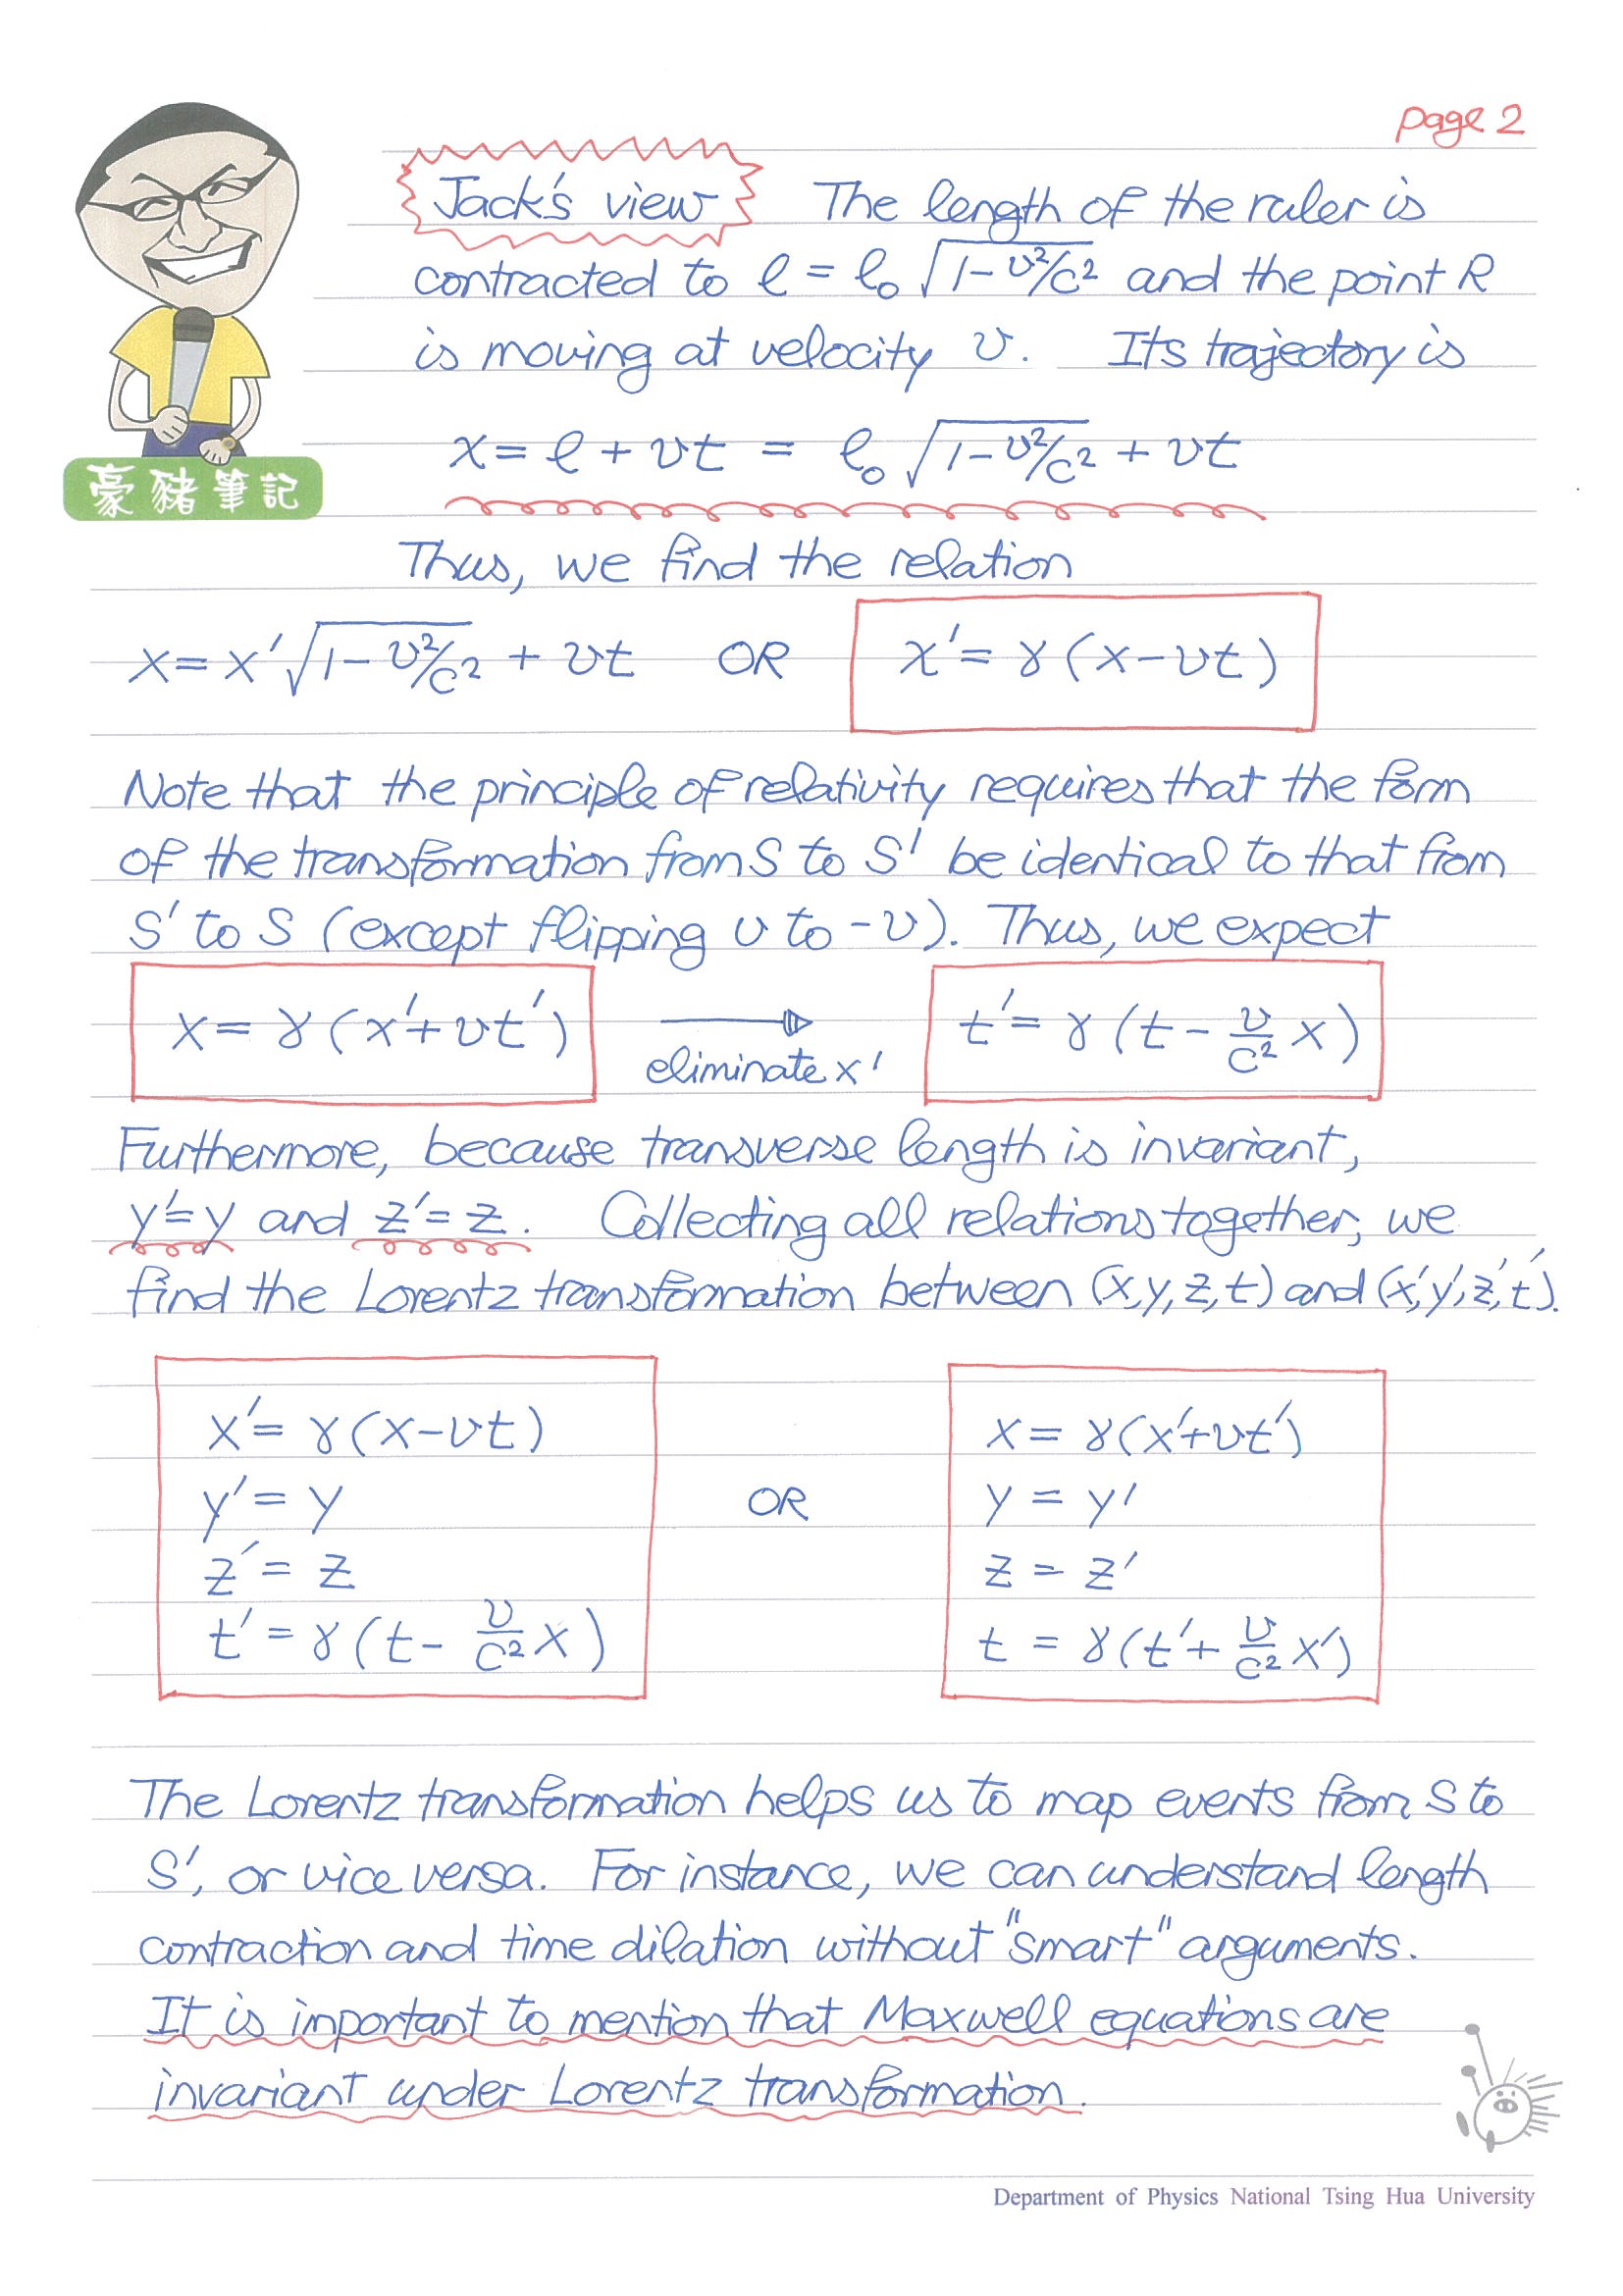 page 2
Jack's view The length of the ruler is
contracted to ℓ = ℓ₀ √(1-v²/c²) and the point R
is moving at velocity v. Its trajectory is
x = ℓ + vt = ℓ₀ √(1-v²/c²) + vt
豪豬筆記
Thus, we find the relation
x = x′ √(1-v²/c²) + vt OR x′ = γ (x-vt)
Note that the principle of relativity requires that the form
of the transformation from S to S′ be identical to that from
S′ to S (except flipping v to -v). Thus, we expect
x = γ (x′+vt′) eliminate x′ t′ = γ (t - v/c² x)
Furthermore, because transverse length is invariant,
y′=y and z′=z. Collecting all relations together, we
find the Lorentz transformation between (x,y,z,t) and (x′,y′,z′,t′).
x′ = γ (x-vt) x = γ (x′+vt′)
y′ = y OR y = y′
z′ = z z = z′
t′ = γ (t - v/c² x) t = γ (t′ + v/c² x′)
The Lorentz transformation helps us to map events from S to
S′, or vice versa. For instance, we can understand length
contraction and time dilation without "smart" arguments.
It is important to mention that Maxwell equations are
invariant under Lorentz transformation.
Department of Physics National Tsing Hua University